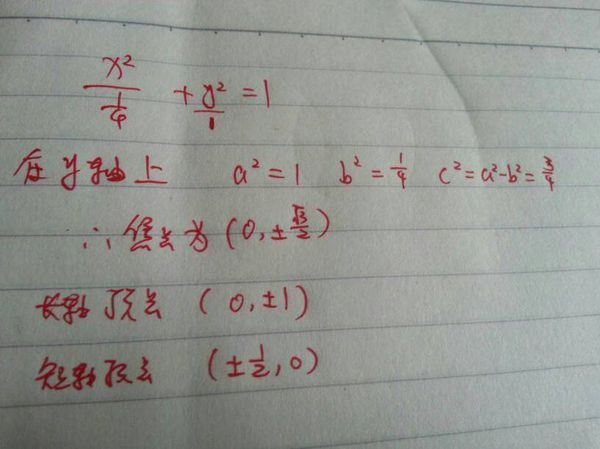 x²/(1/4) + y²/1 = 1
在y轴上 a² = 1 b² = 1/4 c² = a²-b² = 3/4
∴焦点为(0,±√3/2)
长轴顶点 (0,±1)
短轴顶点 (±1/2,0)